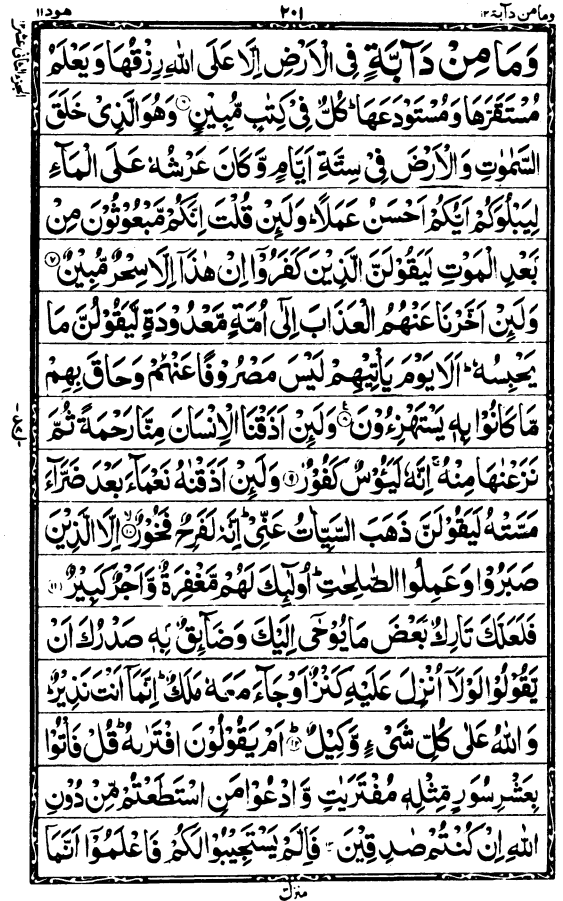 وما من دآبة ۱۲
۲۰۱
هود ۱۱
وَمَا مِنْ دَآبَّةٍ فِى الْاَرْضِ اِلَّا عَلَى اللّٰهِ رِزْقُهَا وَيَعْلَمُ
مُسْتَقَرَّهَا وَمُسْتَوْدَعَهَا ؕ كُلٌّ فِىْ كِتٰبٍ مُّبِيْنٍ ۶ وَهُوَ الَّذِىْ خَلَقَ
السَّمٰوٰتِ وَالْاَرْضَ فِىْ سِتَّةِ اَيَّامٍ وَّكَانَ عَرْشُهٗ عَلَى الْمَآءِ
لِيَبْلُوَكُمْ اَيُّكُمْ اَحْسَنُ عَمَلًا ؕ وَلَئِنْ قُلْتَ اِنَّكُمْ مَّبْعُوْثُوْنَ مِنْۢ
بَعْدِ الْمَوْتِ لَيَقُوْلَنَّ الَّذِيْنَ كَفَرُوْۤا اِنْ هٰذَاۤ اِلَّا سِحْرٌ مُّبِيْنٌ ۷
وَلَئِنْ اَخَّرْنَا عَنْهُمُ الْعَذَابَ اِلٰٓى اُمَّةٍ مَّعْدُوْدَةٍ لَّيَقُوْلُنَّ مَا
يَحْبِسُهٗ ؕ اَلَا يَوْمَ يَاْتِيْهِمْ لَيْسَ مَصْرُوْفًا عَنْهُمْ وَحَاقَ بِهِمْ
مَّا كَانُوْا بِهٖ يَسْتَهْزِءُوْنَ ۸ وَلَئِنْ اَذَقْنَا الْاِنْسَانَ مِنَّا رَحْمَةً ثُمَّ
نَزَعْنٰهَا مِنْهُ ۚ اِنَّهٗ لَيَئُوْسٌ كَفُوْرٌ ۹ وَلَئِنْ اَذَقْنٰهُ نَعْمَآءَ بَعْدَ ضَرَّآءَ
مَسَّتْهُ لَيَقُوْلَنَّ ذَهَبَ السَّيِّاٰتُ عَنِّىْ ؕ اِنَّهٗ لَفَرِحٌ فَخُوْرٌ ۱۰ اِلَّا الَّذِيْنَ
صَبَرُوْا وَعَمِلُوا الصّٰلِحٰتِ ؕ اُولٰٓئِكَ لَهُمْ مَّغْفِرَةٌ وَّاَجْرٌ كَبِيْرٌ ۱۱
فَلَعَلَّكَ تَارِكٌۢ بَعْضَ مَا يُوْحٰٓى اِلَيْكَ وَضَآئِقٌۢ بِهٖ صَدْرُكَ اَنْ
يَّقُوْلُوْا لَوْلَاۤ اُنْزِلَ عَلَيْهِ كَنْزٌ اَوْ جَآءَ مَعَهٗ مَلَكٌ ؕ اِنَّمَاۤ اَنْتَ نَذِيْرٌ ؕ
وَاللّٰهُ عَلٰى كُلِّ شَىْءٍ وَّكِيْلٌ ۱۲ اَمْ يَقُوْلُوْنَ افْتَرٰىهُ ؕ قُلْ فَاْتُوْا
بِعَشْرِ سُوَرٍ مِّثْلِهٖ مُفْتَرَيٰتٍ وَّادْعُوْا مَنِ اسْتَطَعْتُمْ مِّنْ دُوْنِ
اللّٰهِ اِنْ كُنْتُمْ صٰدِقِيْنَ ۱۳ فَاِلَّمْ يَسْتَجِيْبُوْا لَكُمْ فَاعْلَمُوْۤا اَنَّمَاۤ
الجزء الثانى عشر ۱۲
منزل ۳